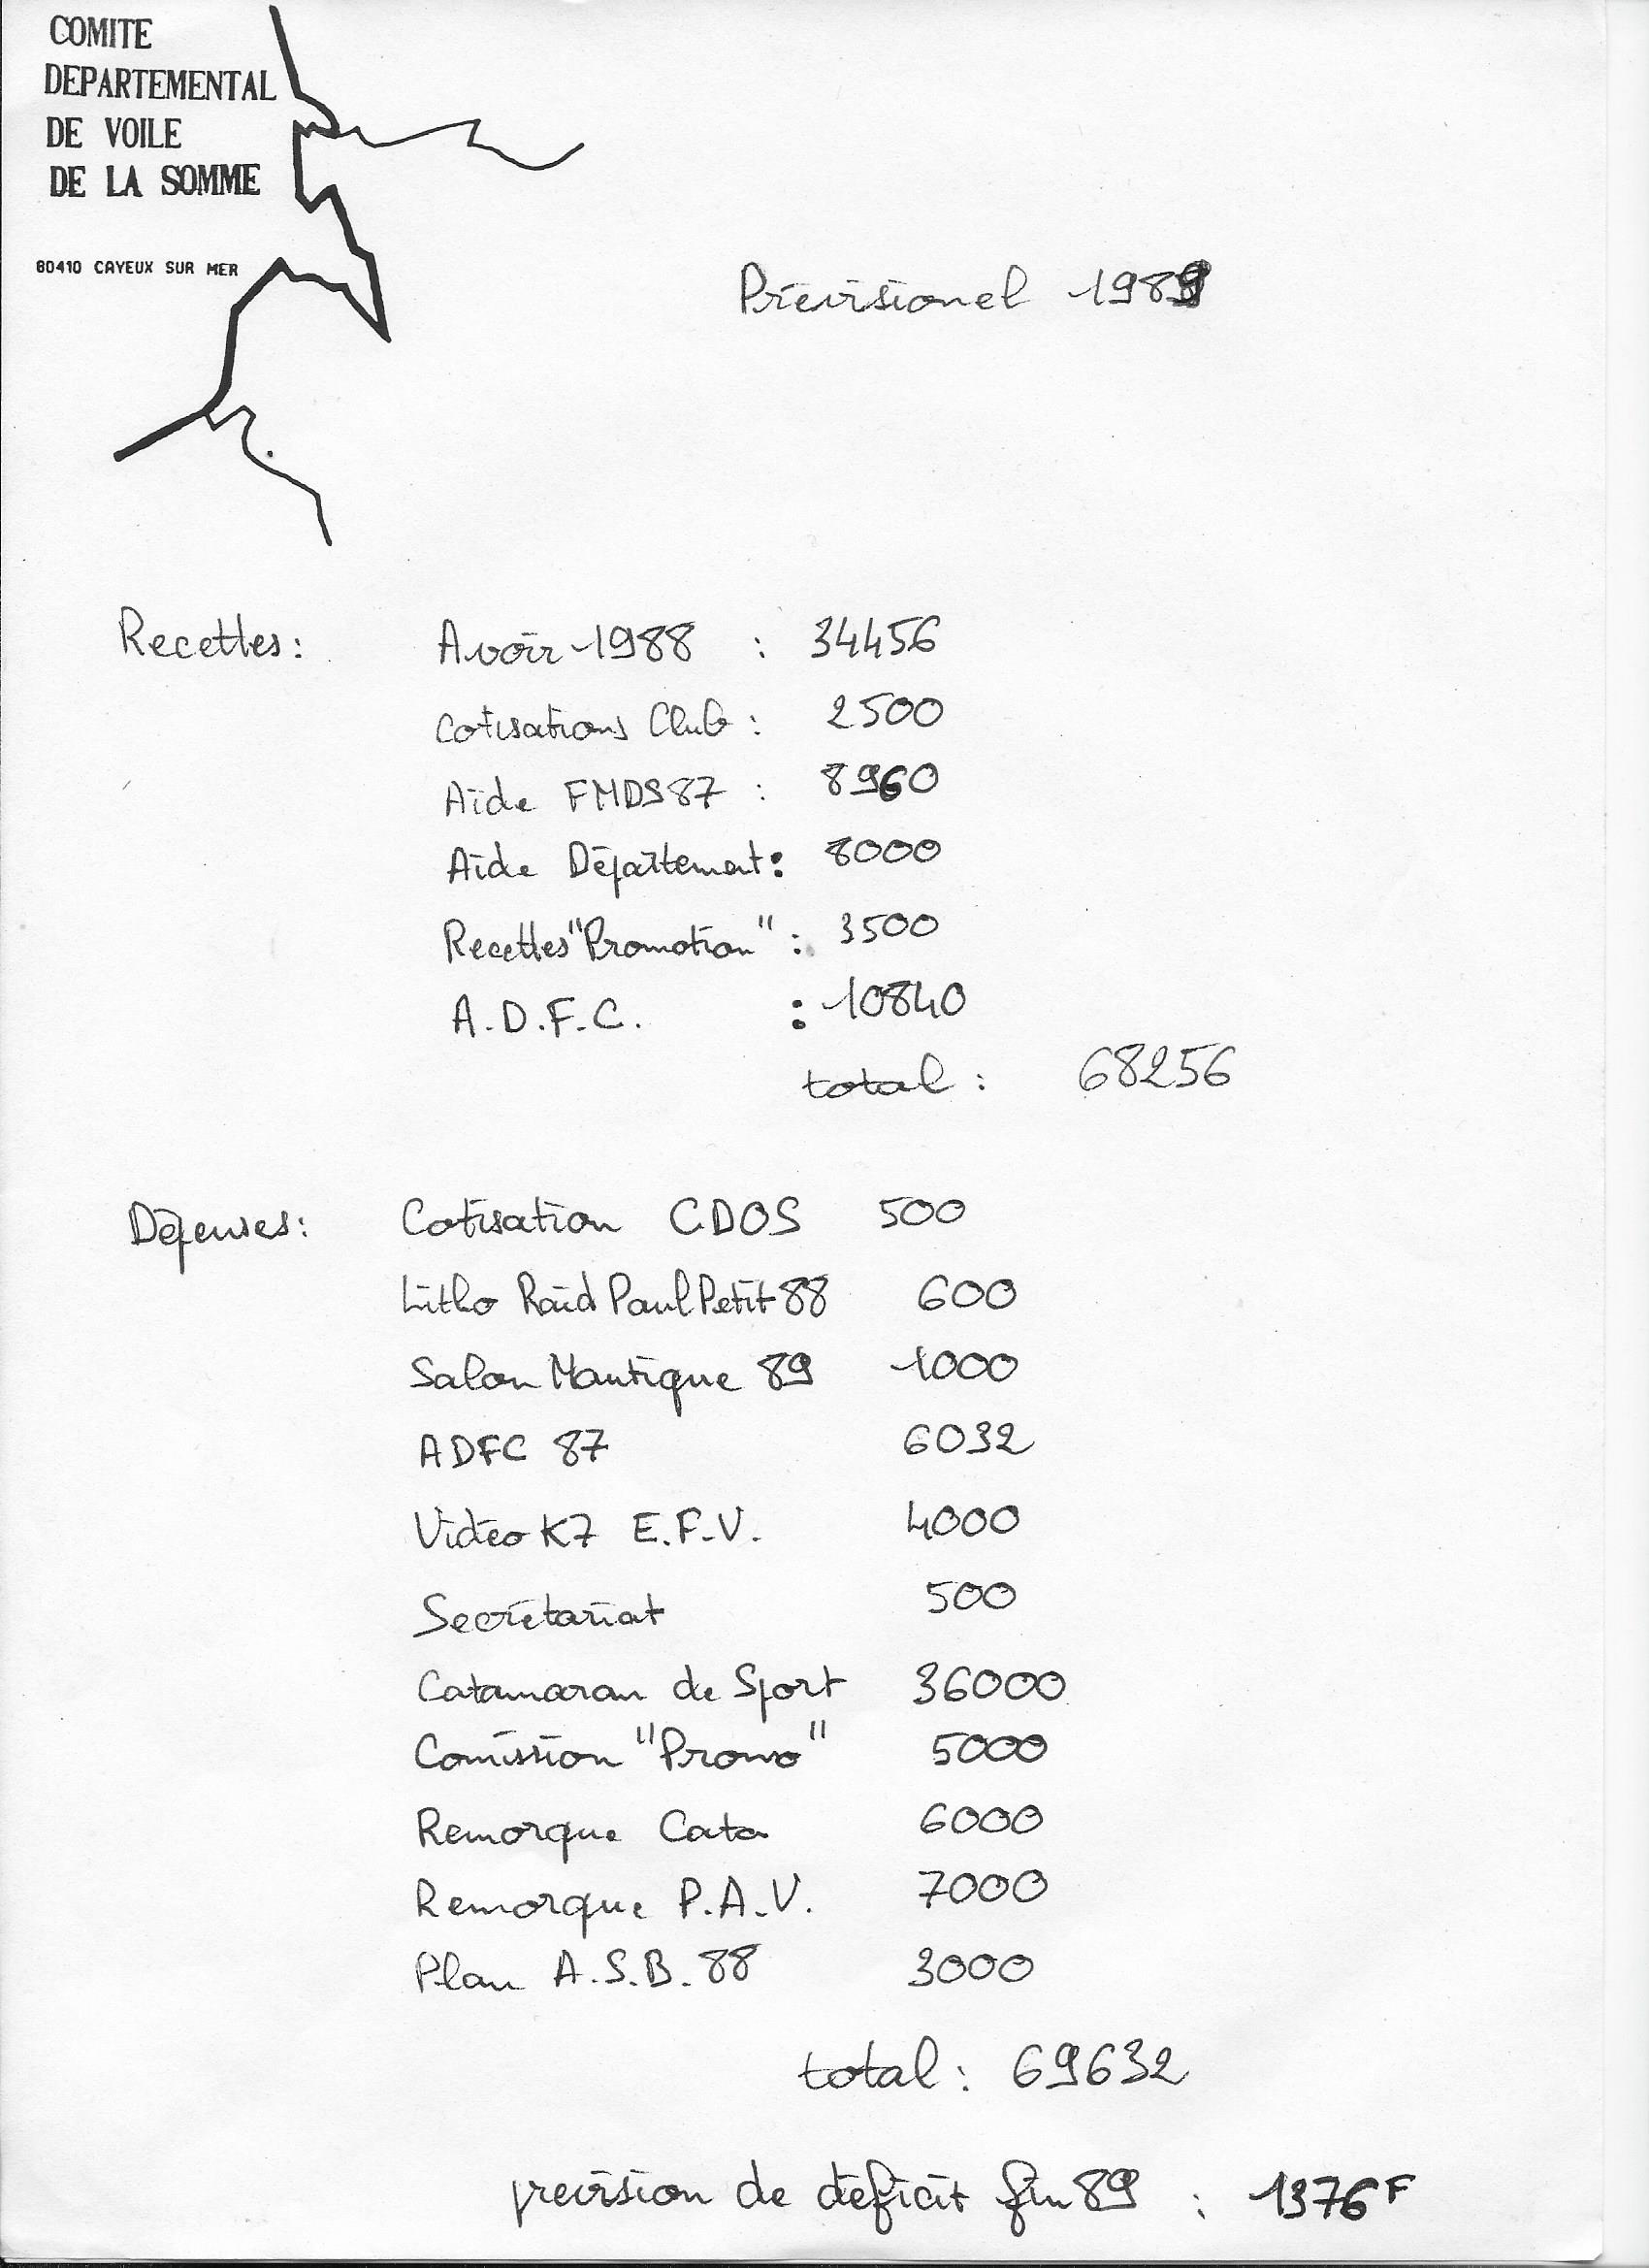 COMITE
DEPARTEMENTAL
DE VOILE
DE LA SOMME
80410 CAYEUX SUR MER
Prévisionel 1989
Recettes: Avoir 1988 : 34456
Cotisations Club : 2500
Aide FMDS87 : 8960
Aide Département : 8000
Recettes "Promotion" : 3500
A.D.F.C. : 10840
total : 68256
Dépenses: Cotisation CDOS 500
Litho Raid Paul Petit 88 600
Salon Nautique 89 1000
ADFC 87 6032
Vidéo K7 E.F.V. 4000
Secrétariat 500
Catamaran de Sport 36000
Comission "Promo" 5000
Remorque Cata 6000
Remorque P.A.V. 7000
Plan A.S.B. 88 3000
total : 69632
prévision de déficit fin 89 : 1376F